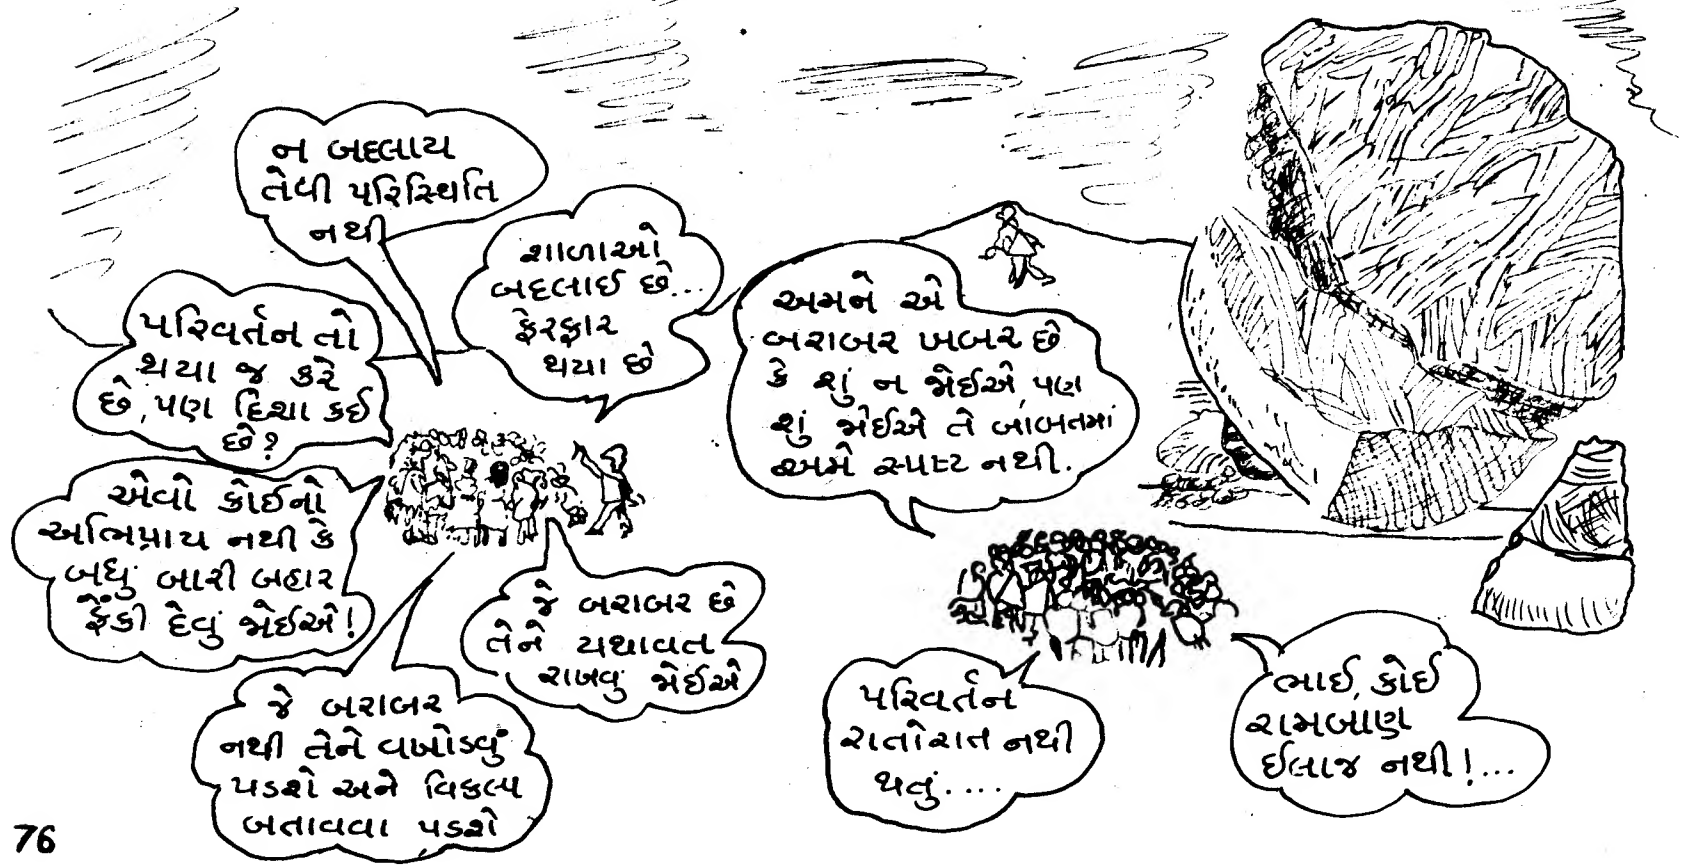 ન બદલાય
તેવી પરિસ્થિતિ
નથી
શાળાઓ
બદલાઈ છે...
ફેરફાર
થયા છે
પરિવર્તન તો
થયા જ કરે
છે, પણ દિશા કઈ
છે?
એવો કોઈનો
અભિપ્રાય નથી કે
બધું બારી બહાર
ફેંકી દેવું જોઈએ!
જે બરાબર છે
તેને યથાવત
રાખવું જોઈએ
જે બરાબર
નથી તેને વખોડવું
પડશે અને વિકલ્પ
બતાવવા પડશે
અમને એ
બરાબર ખબર છે
કે શું ન જોઈએ, પણ
શું જોઈએ તે બાબતમાં
અમે સ્પષ્ટ નથી.
પરિવર્તન
રાતોરાત નથી
થતું....
ભાઈ, કોઈ
રામબાણ
ઈલાજ નથી!...
76